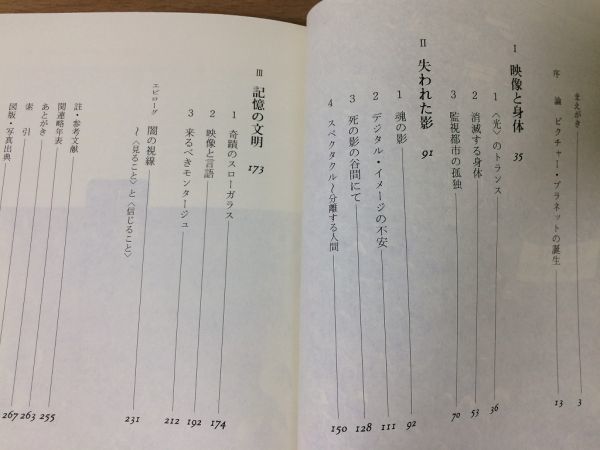 まえがき 3
序 論 ピクチャー・プラネットの誕生 13
I 映像と身体 35
1 〈光〉のトランス 36
2 消滅する身体 53
3 監視都市の孤独 70
II 失われた影 91
1 魂の影 92
2 デジタル・イメージの不安 111
3 死の影の谷間にて 128
4 スペクタクル〜分離する人間 150
III 記憶の文明 173
1 奇蹟のスローガラス 174
2 映像と言語 192
3 来るべきモンタージュ 212
エピローグ 闇の視線 231
〜〈見ること〉と〈信じること〉
註・参考文献
関連略年表
あとがき 255
索 引 263
図版・写真出典 267